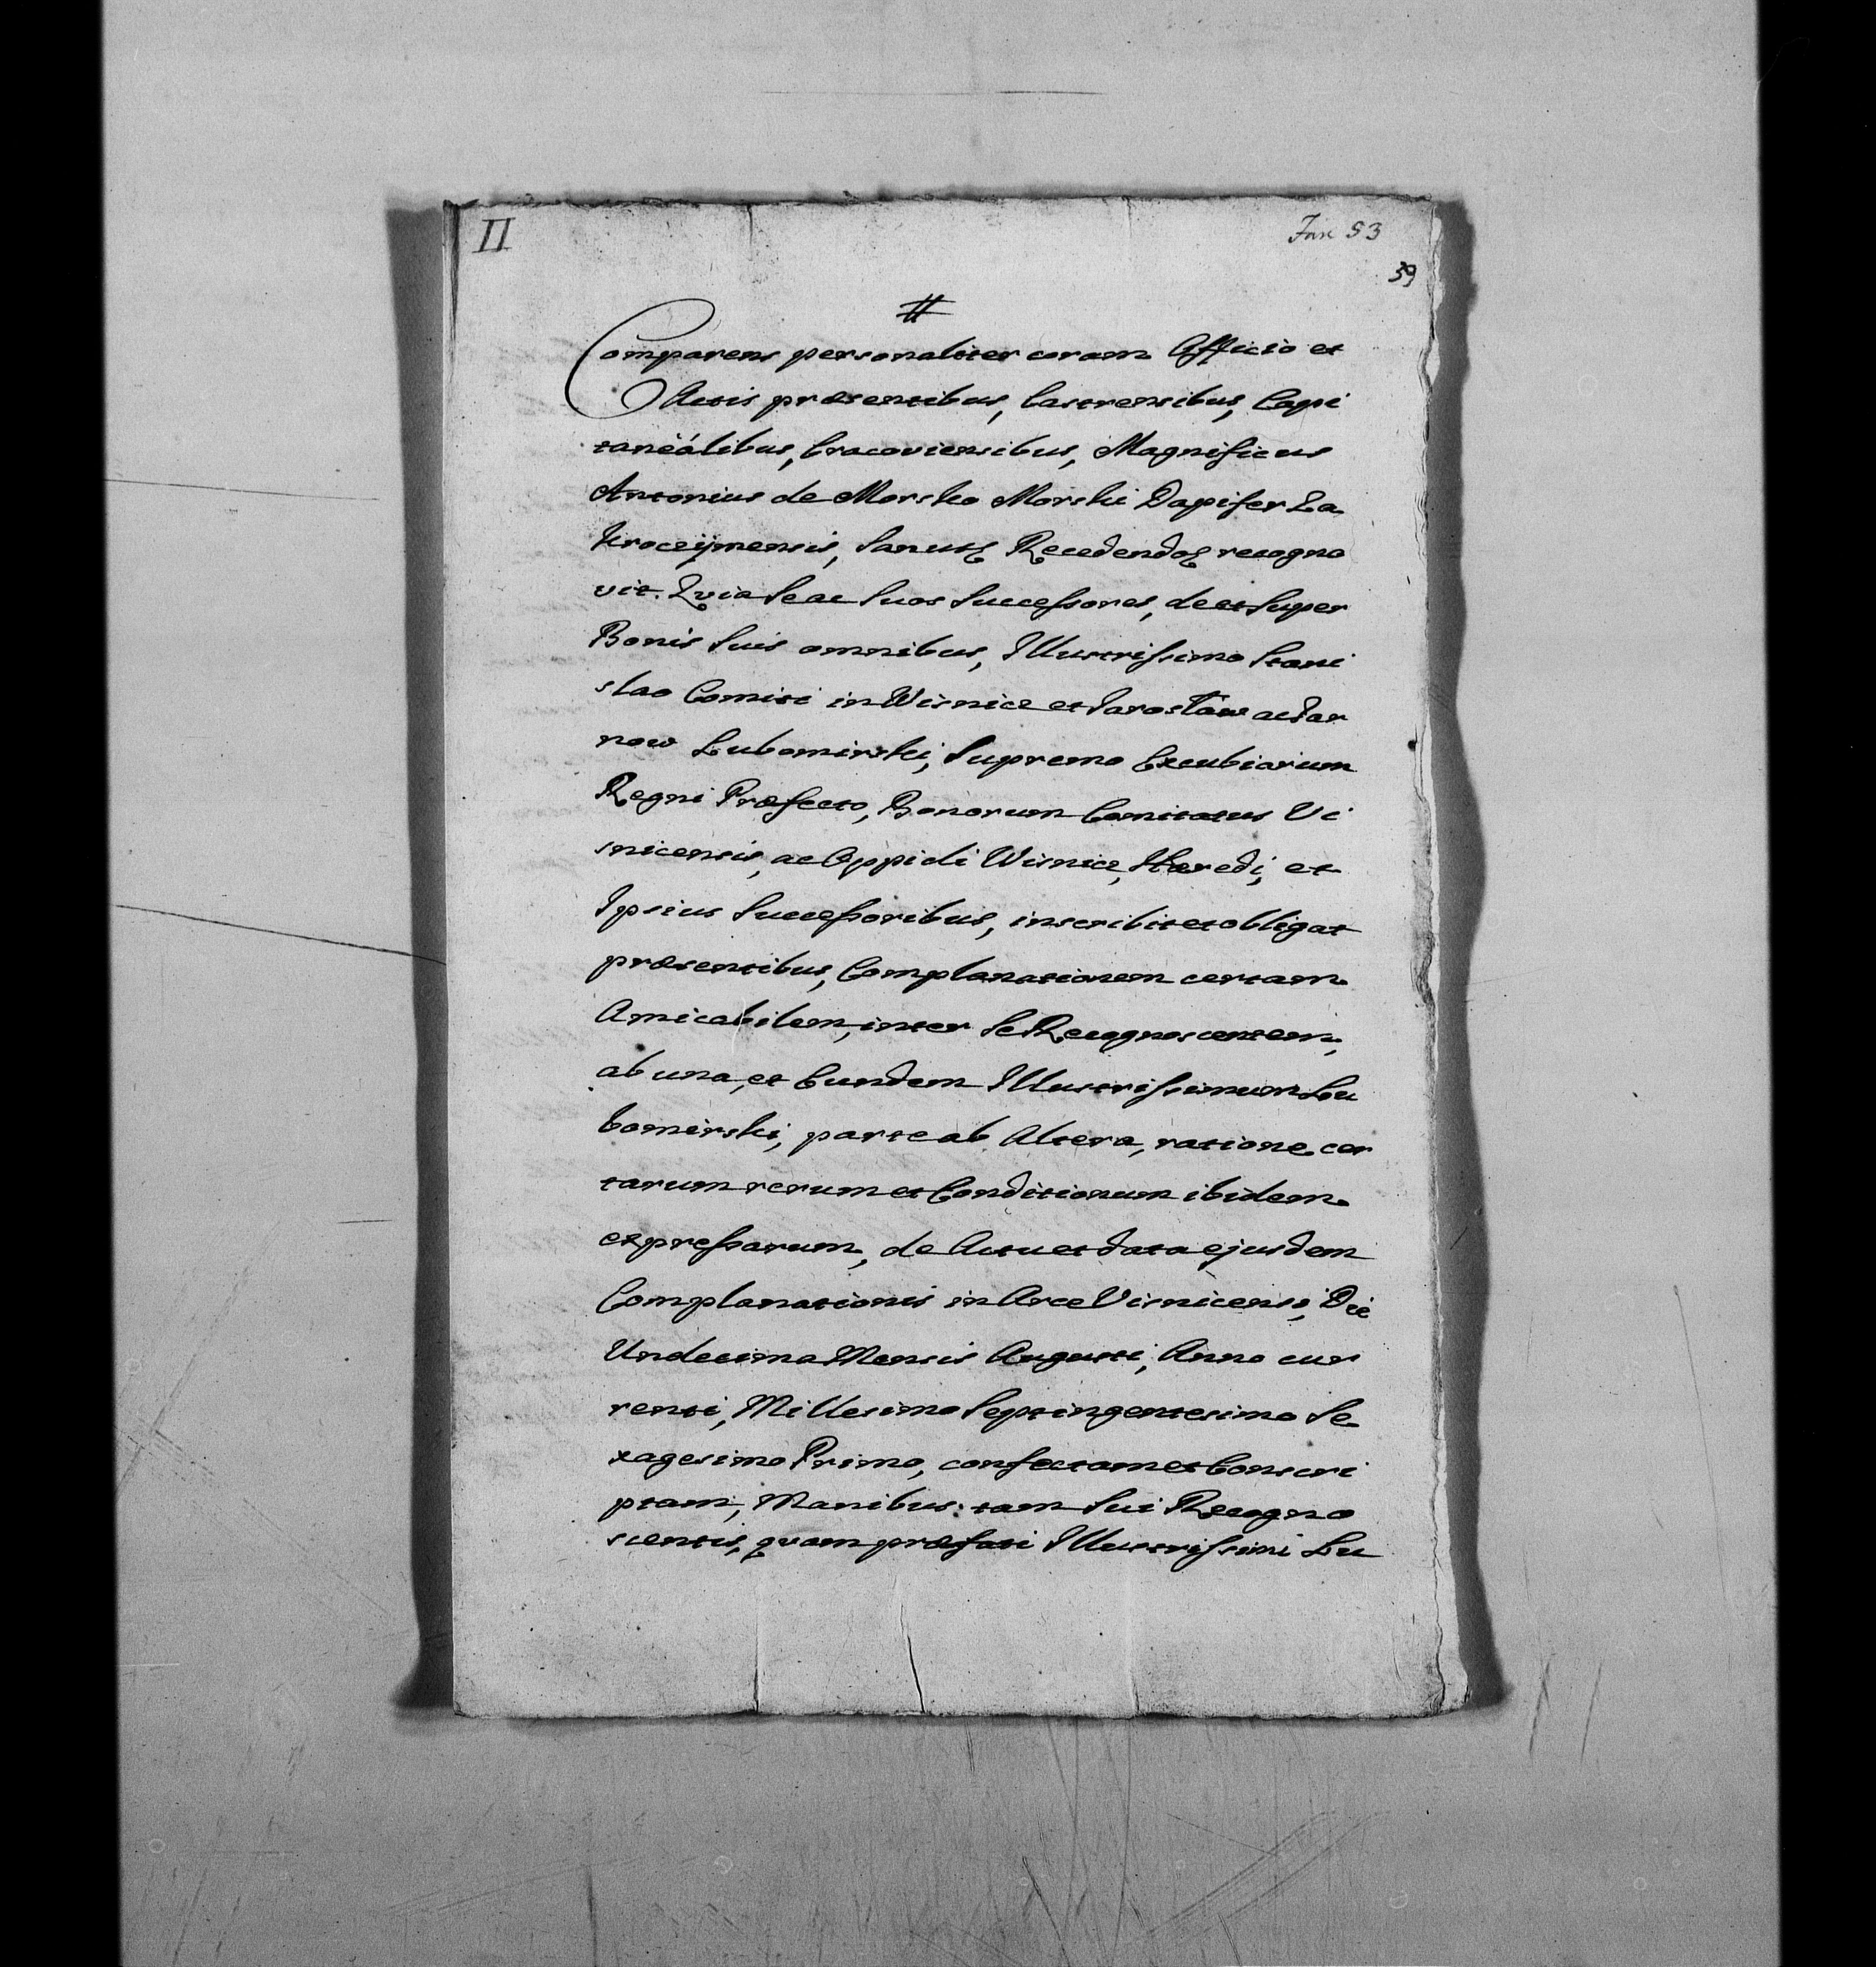 II
Fasc 53
39
#
Comparens personaliter coram Officio et
Actis præsentibus, Castrensibus, Capi
taneálibus, Cracoviensibus, Magnificus
Antonius de Morsko Morski Dapifer Za
kroczÿmensis, Sanusq Recedendoq recogno
vit. Qvia Se ac Suos Successores, de et Super
Bonis Suis omnibus, Illustrissimo Stani
slao Comiti in Wisnice et Jarosław ac Tar
now Lubomirski, Supremo Excubiarum
Regni Præfecto, Bonorum Comitatus Vi
snicensis, ac Oppidi Wisnice, Hæredi, et
Ipsius Successoribus, inscribit et obligat
præsentibus, Complanationem certam
Amicabilem, inter Se Recognoscentem,
ab una, et Eundem Illustrissimum Lu
bomirski, parte ab Altera, ratione cer
tarum rerum et Conditionum ibidem
expressarum, de Actu et data ejusdem
Complanationis in Arce Visnicensi, Die
Undecima Mensis Augusti, Anno cur
renti, Millesimo Septingentesimo Se
xagesimo Primo, confectam et Conscri
ptam, Manibus tam Sui Recogno
scentis, qvam præfati Illustrissimi Lu